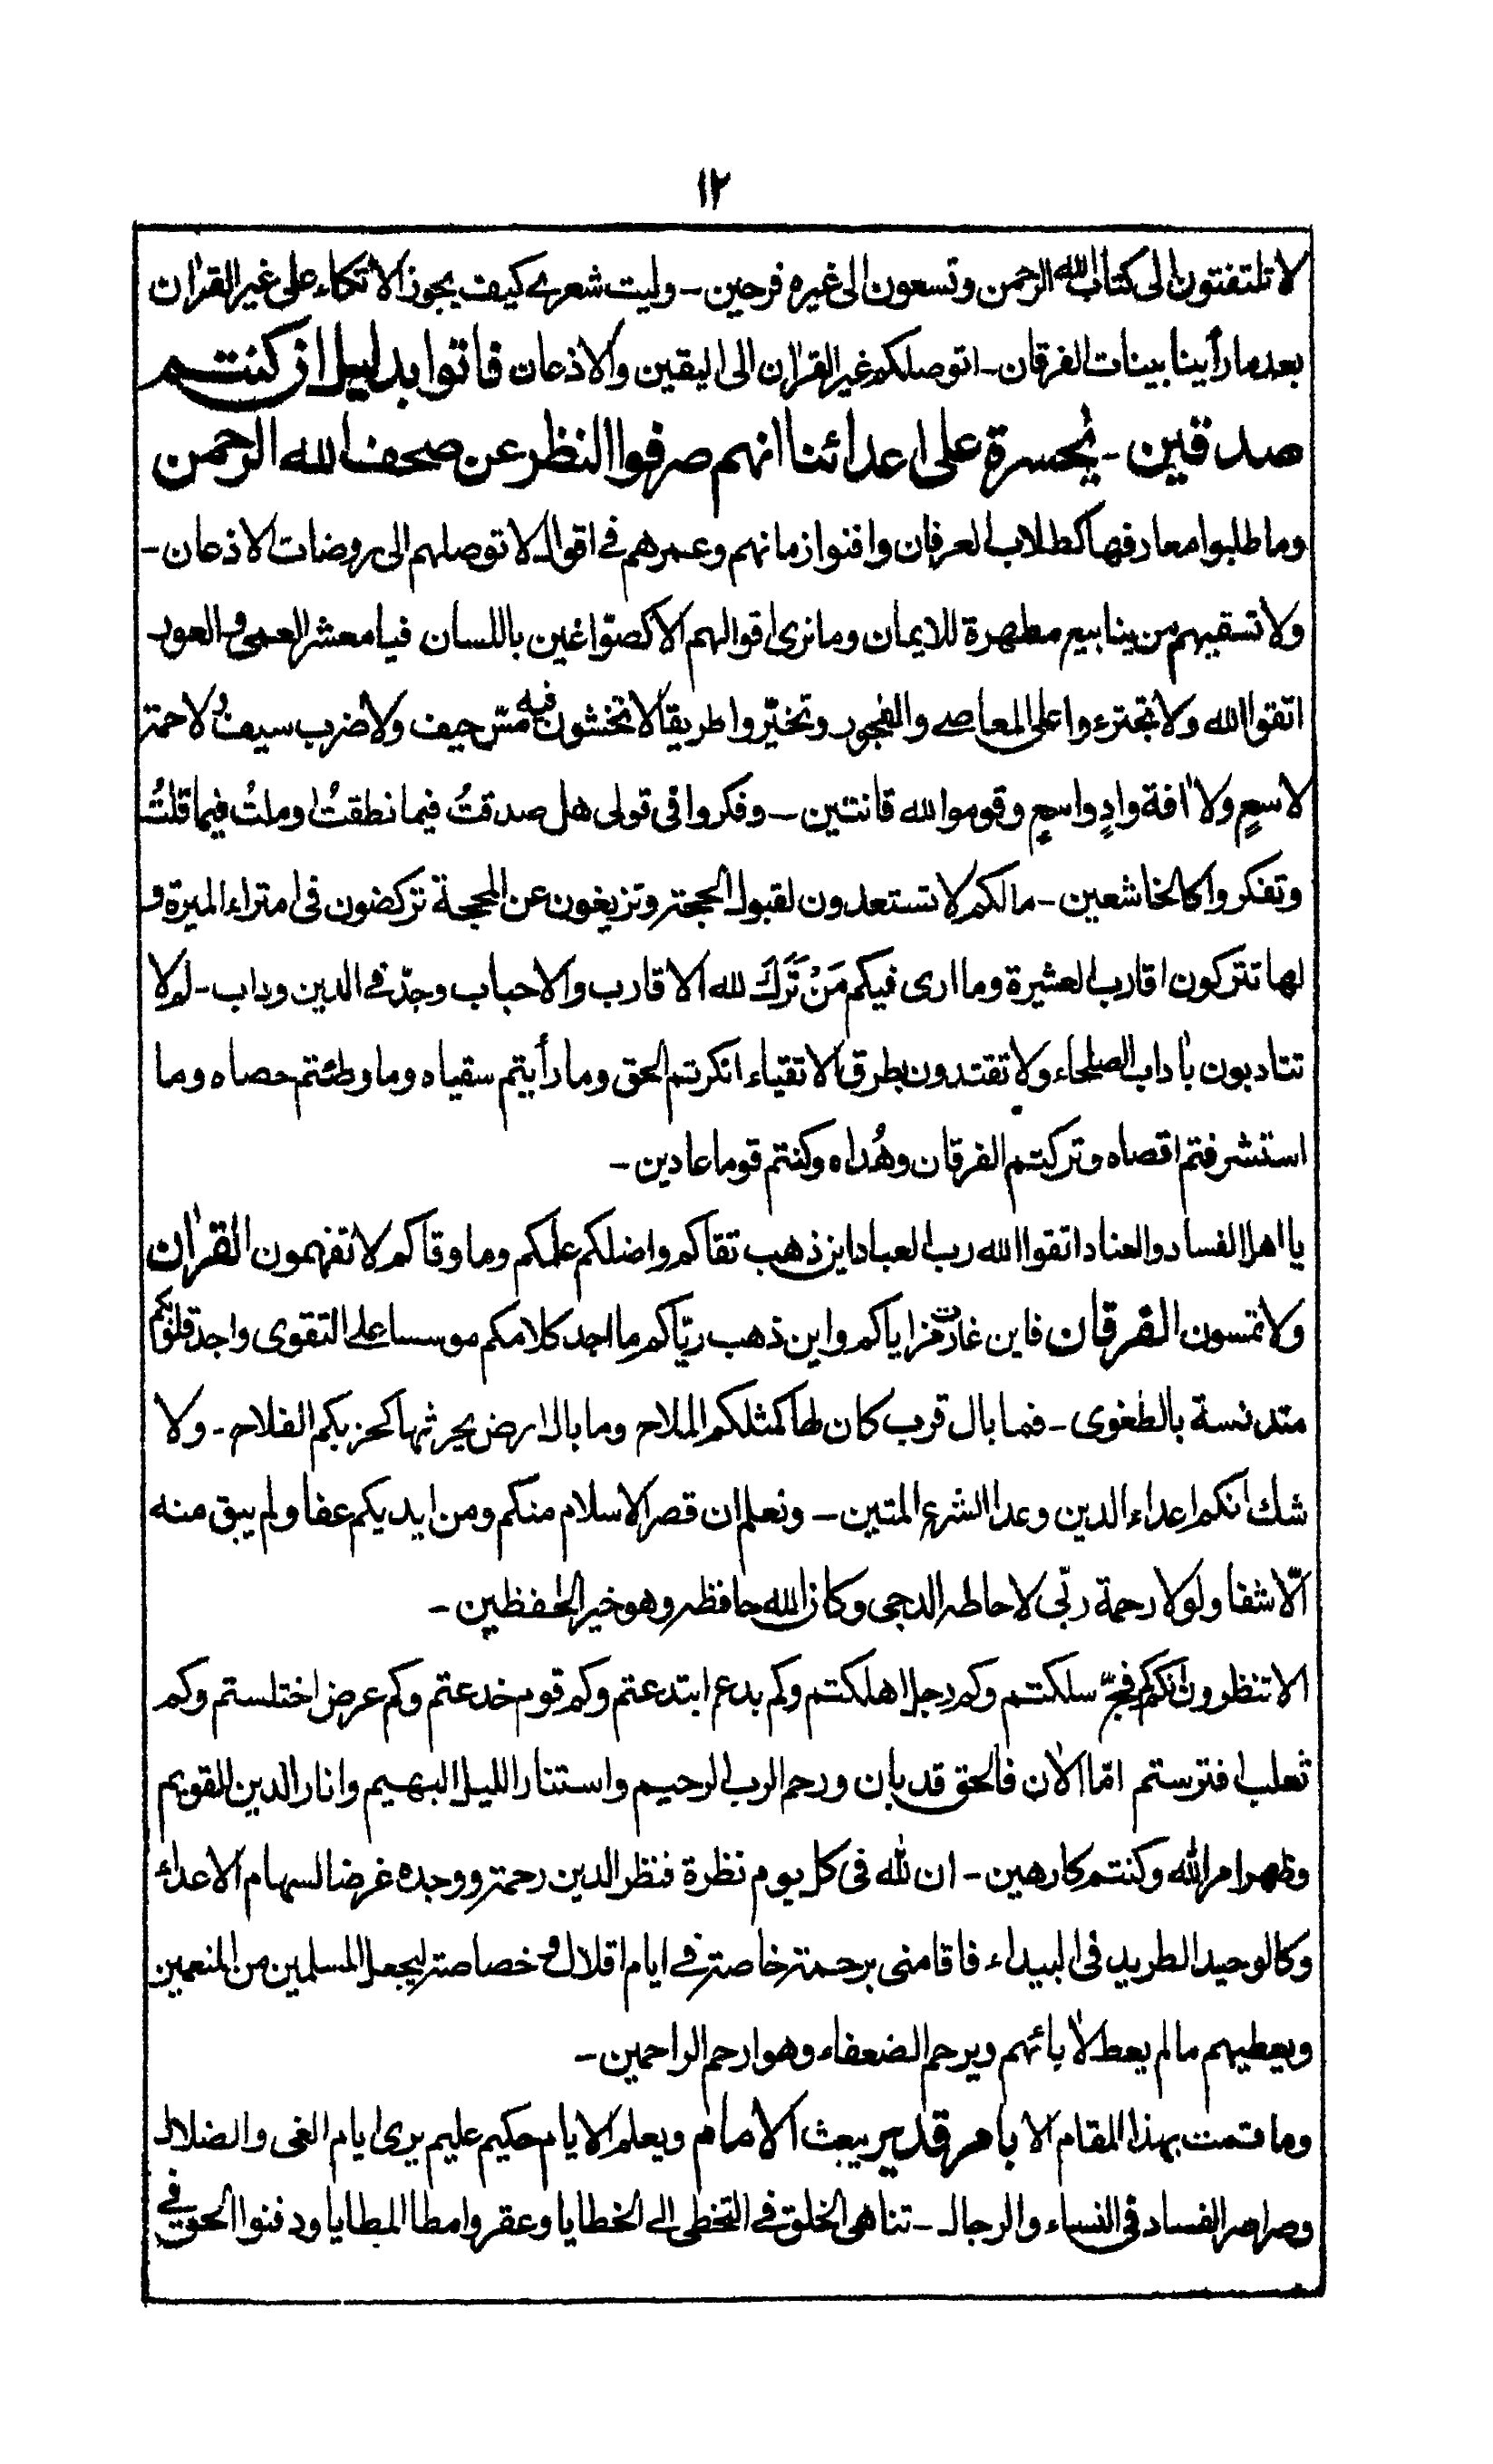 ١٢
لا تلتفتون الى كتاب الله الرحمن وتسعون الى غيره فرحين ـ وليت شعرى كيف يجوز الاتكاء على غير القرأن
بعد ما رأينا بينات الفرقان ـ اتوصلكم غير القرأن الى اليقين والاذعان فاتوا بدليل ان كنتم
صدقين ـ يٰحسرة على اعدائنا انهم صرفوا النظر عن صحف الله الرحمن
وما طلبوا معارفها كطلاب العرفان وافنوا زمانهم وعمرهم فى اقوال لا توصلهم الى روضات الاذعان ـ
ولا تسقيهم من ينابيع مطهرة للايمان وما نرى اقوالهم الا كصوّاغين باللسان فيا معشر العمى والعور
اتقوا الله ولا تجترءوا على المعاصى والفجور وتخيّروا طريقا لا تخشون فيه مسّ حيف ولا ضرب سيف ولا حمة
لاسعٍ ولا اٰفة وادٍ واسعٍ وقوموا لله قانتين ـ وفكروا فى قولى هل صدقتُ فيما نطقتُ او ملتُ فيما قلتُ
وتفكروا كالخاشعين ـ ما لكم لا تستعدون لقبول الحجة وتزيغون عن المحجة تركضون فى امتراء الميرة و
لها تتركون اقارب العشيرة وما ارى فيكم مَنْ تَرَكَ لله الاقارب والاحباب وجدّ فى الدين وداب ـ لم لا
تتادبون باٰداب الصلحاء ولا تقتدون بطرق الاتقياء انكرتم الحق وما رأيتم سقياه وما وطئتم حصاه وما
استشرفتم اقصاه وتركتم الفرقان وهُداه وكنتم قوما عادين ـ
يا اهل الفساد والعناد اتقوا الله رب العباد اين ذهب تقاكم واضلكم علمكم وما وقاكم لا تفهمون القرأن
ولا تمسون الفرقان فاين غارت مزاياكم واين ذهب ريّاكم ما اجد كلامكم موسسا على التقوى واجد قلوبكم
متدنسة بالطغوى ـ فما بال قرب كان لها كمثلكم الملاح وما بال ارض يحرثها كحزبكم الفلاح ـ ولا
شك انكم اعداء الدين وعدا الشرع المتين ـ ونعلم ان قصر الاسلام منكم ومن ايديكم عفا ولم يبق منه
الّا شفا ولولا رحمة ربّى لاحاطه الدجى وكان الله حافظه وهو خير الحٰفظين ـ
الا تنظرون انكم كم فجّ سلكتم وكم رجل اهلكتم وكم بدع ابتدعتم وكم قوم خدعتم وكم عرض اختلستم وكم
ثعلب افترستم امّا الاٰن فالحق قد بان ورحم الرب الرحيم واستنار الليل البهيم وانار الدين القويم
وظهر امر الله وكنتم كارهين ـ ان لله فى كل يوم نظرة فنظر الدين رحمة ووجده غرضا لسهام الاعداء
وكالوحيد الطريد فى البيداء فاقامنى برحمة خاصة فى ايام اقلال وخصاصة ليجعل المسلمين من المنعمين
ويعطيهم ما لم يعط لاٰبائهم ويرحم الضعفاء وهو ارحم الراحمين ـ
وما قمت بهذا المقام الا بامر قدير يبعث الامام ويعلم الايام حكيم عليم يرى ايام الغى والضلال
وصراصر الفساد فى النساء والرجال ـ تناهى الخلق فى التخطى الى الخطايا وعقروا مطا المطايا ودفنوا الحق فى